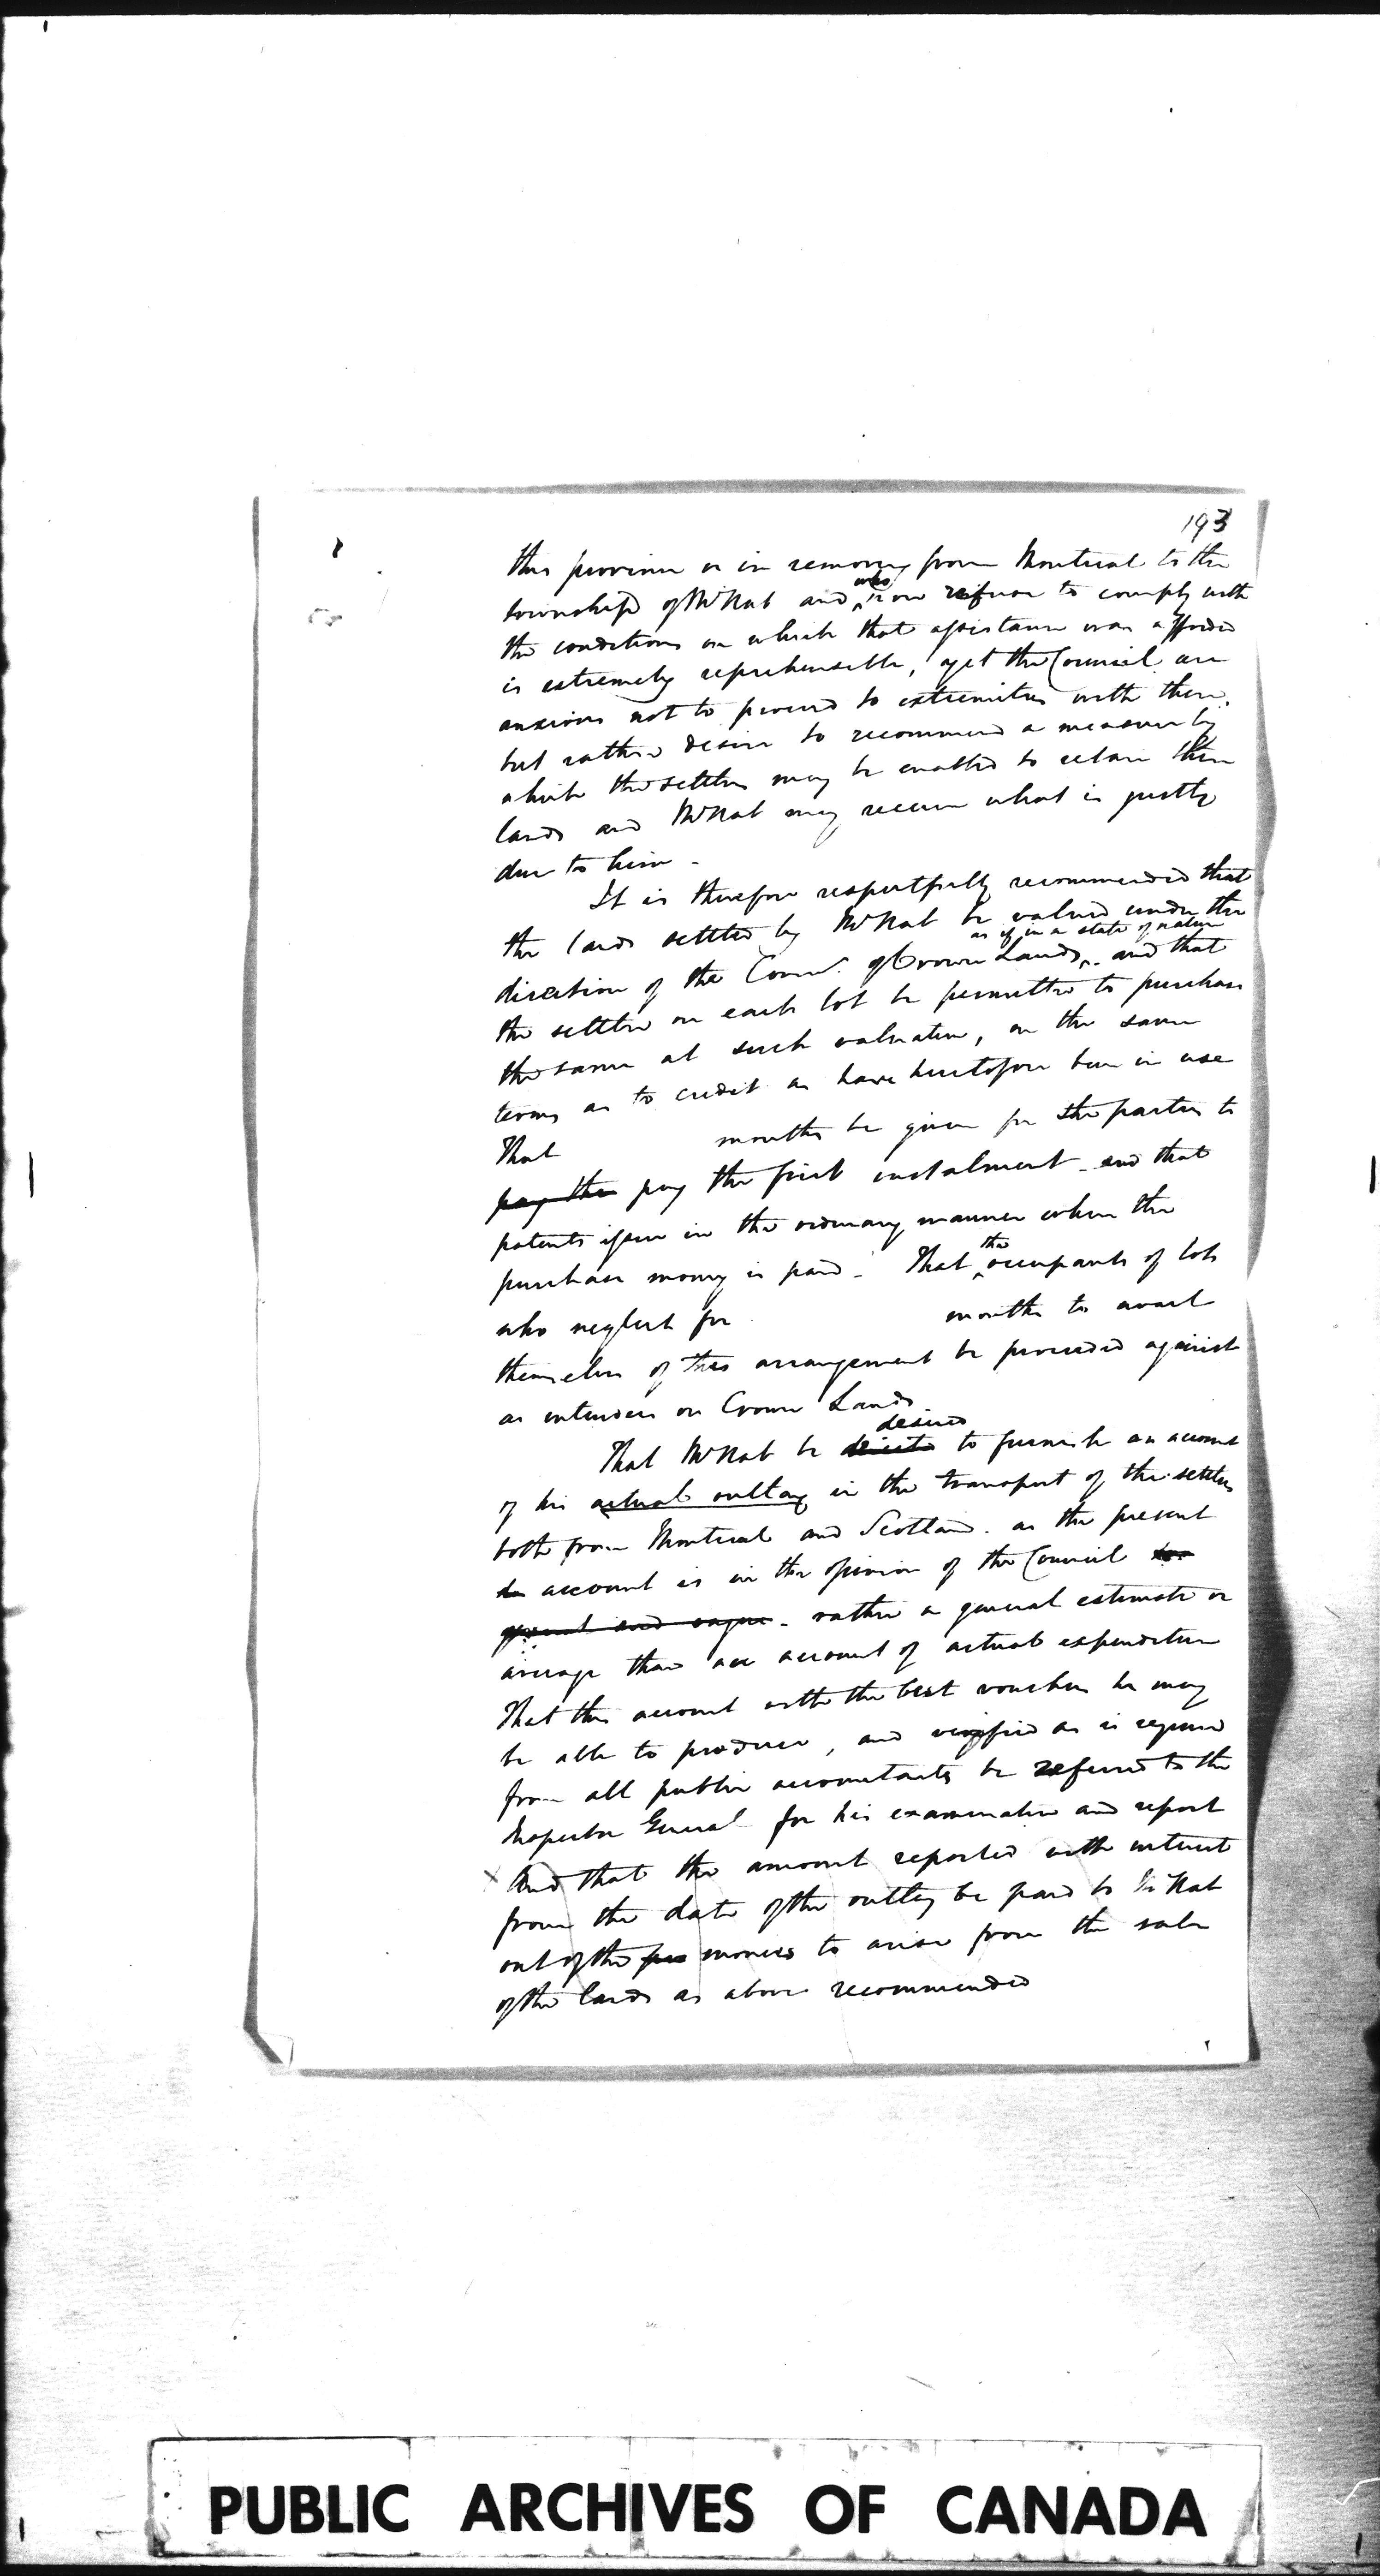 193
this province or in removing from Montreal to the
township of McNab and who now refuse to comply with
the conditions on which that assistance was afforded
is extremely reprehensible, yet the Council are
anxious not to proceed to extremities with them.
but rather desire to recommend a measure by
which the settlers may be enabled to retain their
lands and McNab may receive what is justly
due to him -
It is therefore respectfully recommended that
the lands settled by McNab be valued under the
as if in a state of nature
direction of the Comr. of Crown Lands, and that
the settler on each lot be permitted to purchase
the same at such valuation, on the same
terms as to credit as have heretofore been in use
That months be given for the parties to
pay the pay the first instalment - and that
patents issue in the ordinary manner when the
purchase money is paid - That the occupants of lots
who neglect for months to avail
themselves of this arrangement be proceeded against
as intruders on Crown Lands
desired
That McNab be to furnish an account
of his actual outlay in the transport of the settlers
both from Montreal and Scotland. as the present
account is in the opinion of the Council too
general and vague - rather a general estimate or
average than an account of actual expenditure
That this account with the best vouchers he may
be able to produce, and verified as is required
from all public accountants be referred to the
Inspector General for his examination and report
And that the amount reported with interest
from the date of the outlay be paid to McNab
out of the monies to arise from the sale
of the lands as above recommended
PUBLIC ARCHIVES OF CANADA